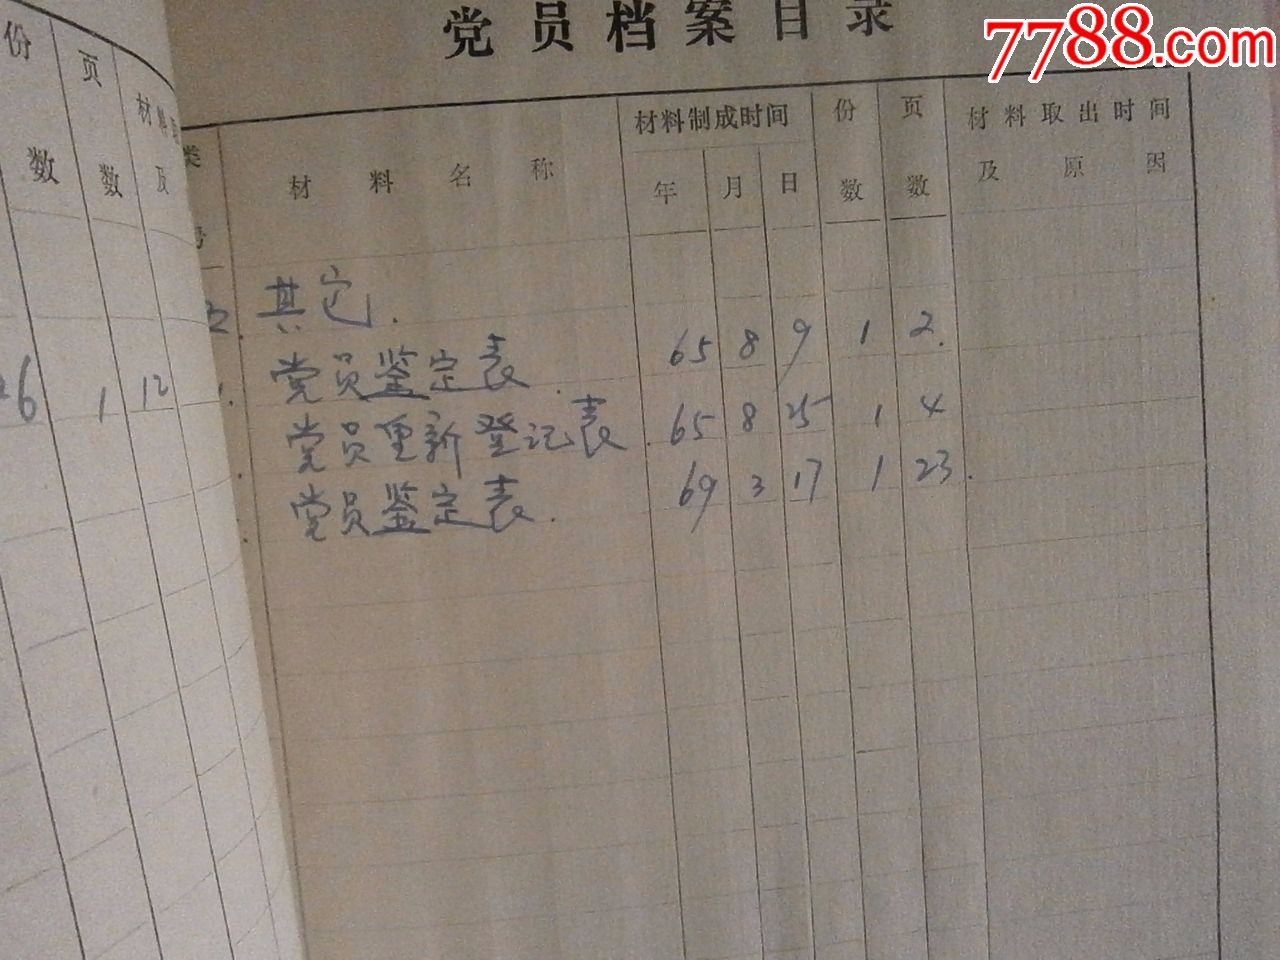 党员档案目录
7788.com
份 页
材料
数 数 及
类 材料名称 材料制成时间 份 页 材料取出时间
号 年 月 日 数 数 及原因
五. 其它.
党员鉴定表. 65 8 9 1 2.
党员重新登记表. 65 8 25 1 4
党员鉴定表. 69 3 17 1 23.
26 1 12